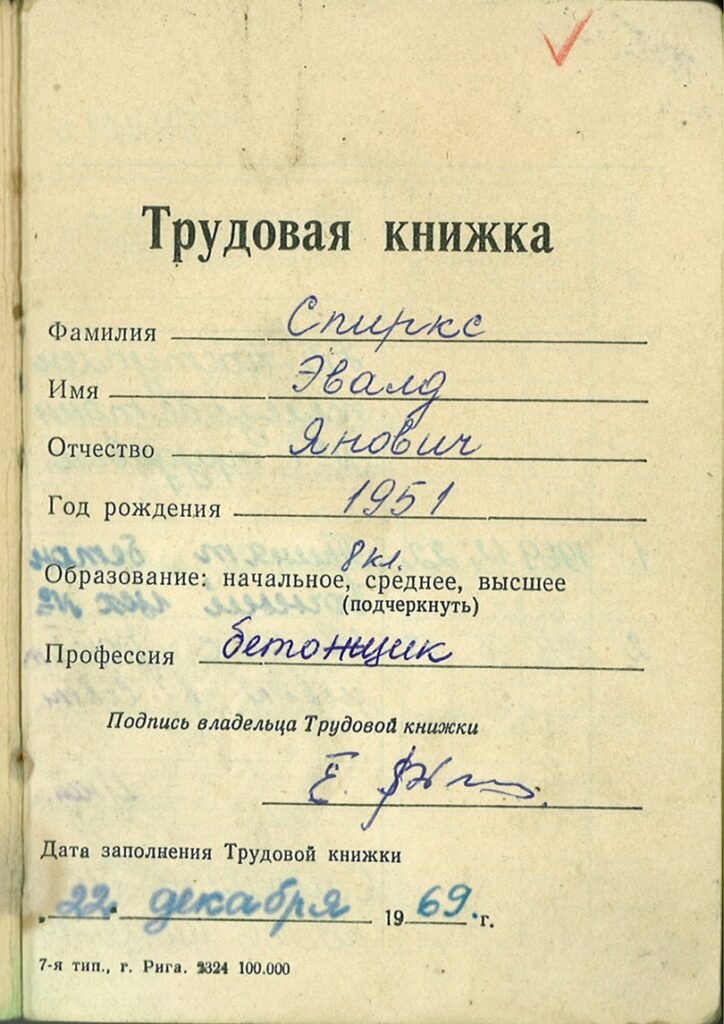 Трудовая книжка
Фамилия Спиркс
Имя Эвалд
Отчество Янович
Год рождения 1951
8 кл.
Образование: начальное, среднее, высшее
(подчеркнуть)
Профессия бетонщик
Подпись владельца Трудовой книжки
Дата заполнения Трудовой книжки
„22.“ декабря 1969. г.
7-я тип., г. Рига. 2324 100.000